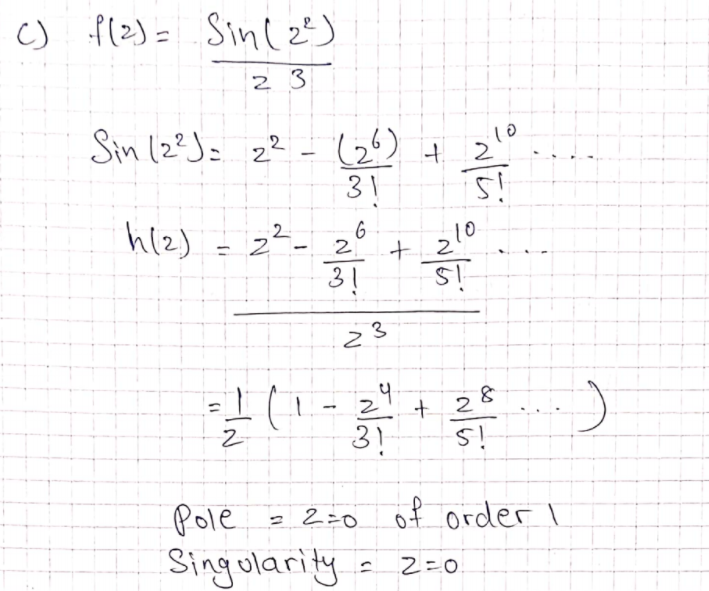 c) f(z) = Sin(z²)
z 3
Sin(z²) = z² - (z⁶) + z¹⁰ ....
3! 5!
h(z) = z² - z⁶ + z¹⁰ ...
3! 5!
z³
= 1/z ( 1 - z⁴/3! + z⁸/5! .... )
Pole = z=0 of order 1
Singularity = z=0